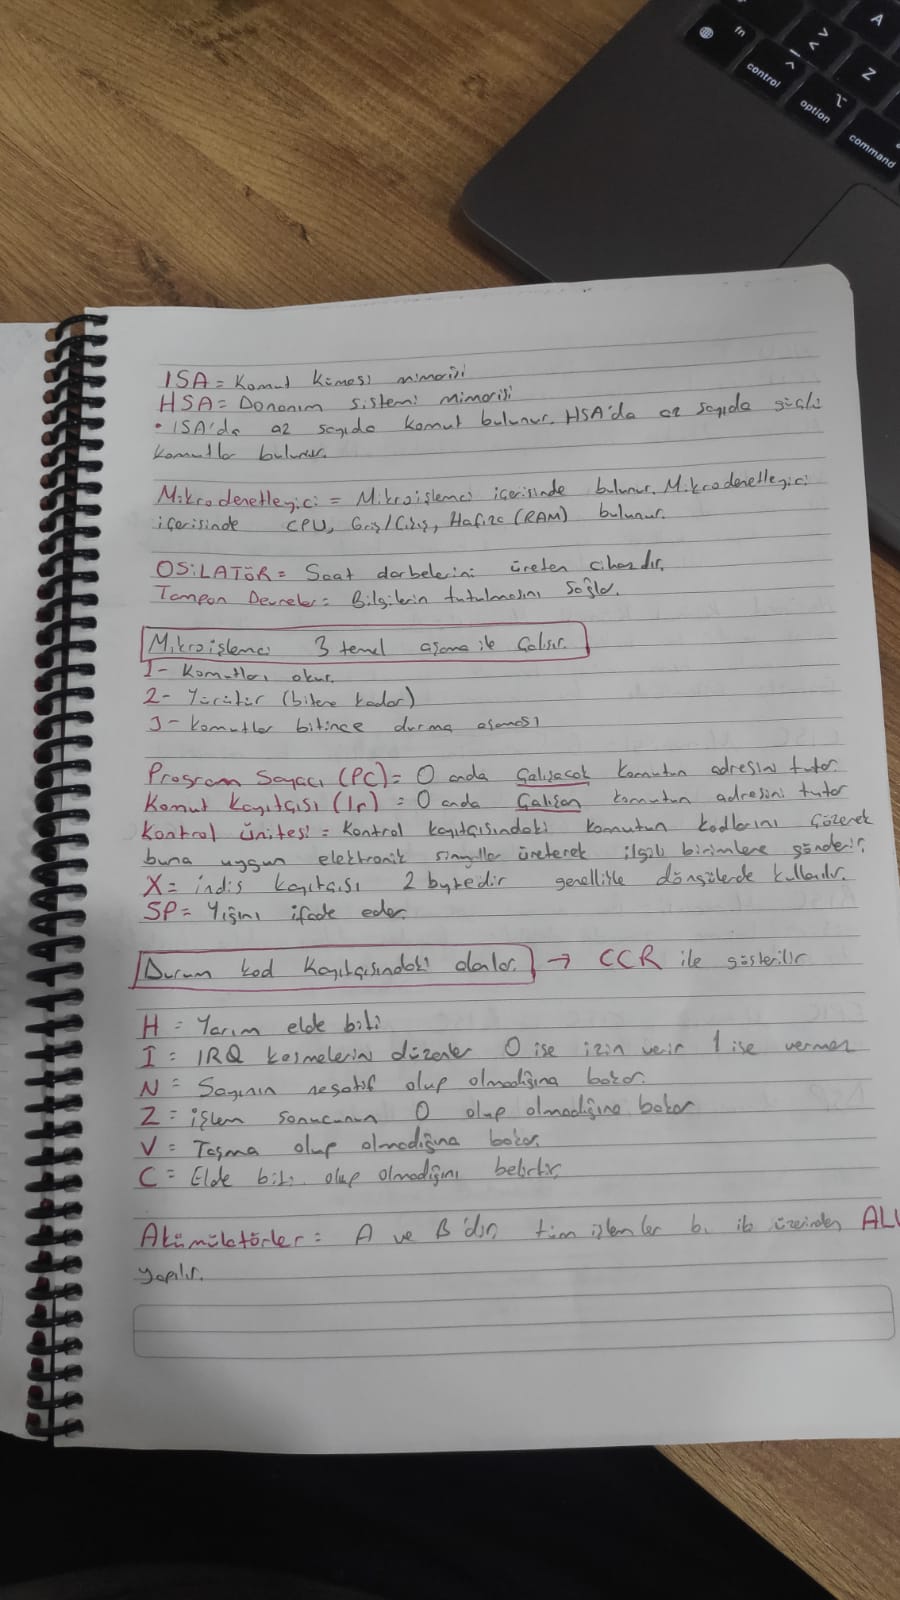 A
Z
fn
control
option
command
ISA = Komut Kümesi mimarisi
HSA = Donanım sistemi mimarisi
• ISA'da az sayıda komut bulunur. HSA'da az sayıda güçlü
komutlar bulunur.
Mikrodenetleyici = Mikroişlemci içerisinde bulunur. Mikrodenetleyici
içerisinde CPU, Giriş/Çıkış, Hafıza (RAM) bulunur.
OSİLATÖR = Saat darbelerini üreten cihazdır.
Tampon Devreler = Bilgilerin tutulmasını sağlar.
Mikroişlemci 3 temel aşama ile çalışır.
1- Komutları okur.
2- Yürütür (bitene kadar)
3- Komutlar bitince durma aşaması
Program Sayacı (PC) = O anda çalışacak komutun adresini tutar.
Komut kayıtçısı (Ir) = O anda çalışan komutun adresini tutar
Kontrol Ünitesi = Kontrol kayıtçısındaki komutun kodlarını çözerek
buna uygun elektronik sinyaller üreterek ilgili birimlere gönderir.
X = indis kayıtçısı 2 bytedir genellikle döngülerde kullanılır.
SP = Yığını ifade eder.
Durum kod kayıtçısındaki alanlar. → CCR ile gösterilir
H = Yarım elde biti
I = IRQ kesmelerini düzenler 0 ise izin verir 1 ise vermez
N = Sayının negatif olup olmadığına bakar.
Z = işlem sonucunun 0 olup olmadığına bakar
V = Taşma olup olmadığına bakar.
C = Elde biti olup olmadığını belirtir.
Akümülatörler = A ve B'dir, tüm işlemler bu iki üzerinden ALU
yapılır.